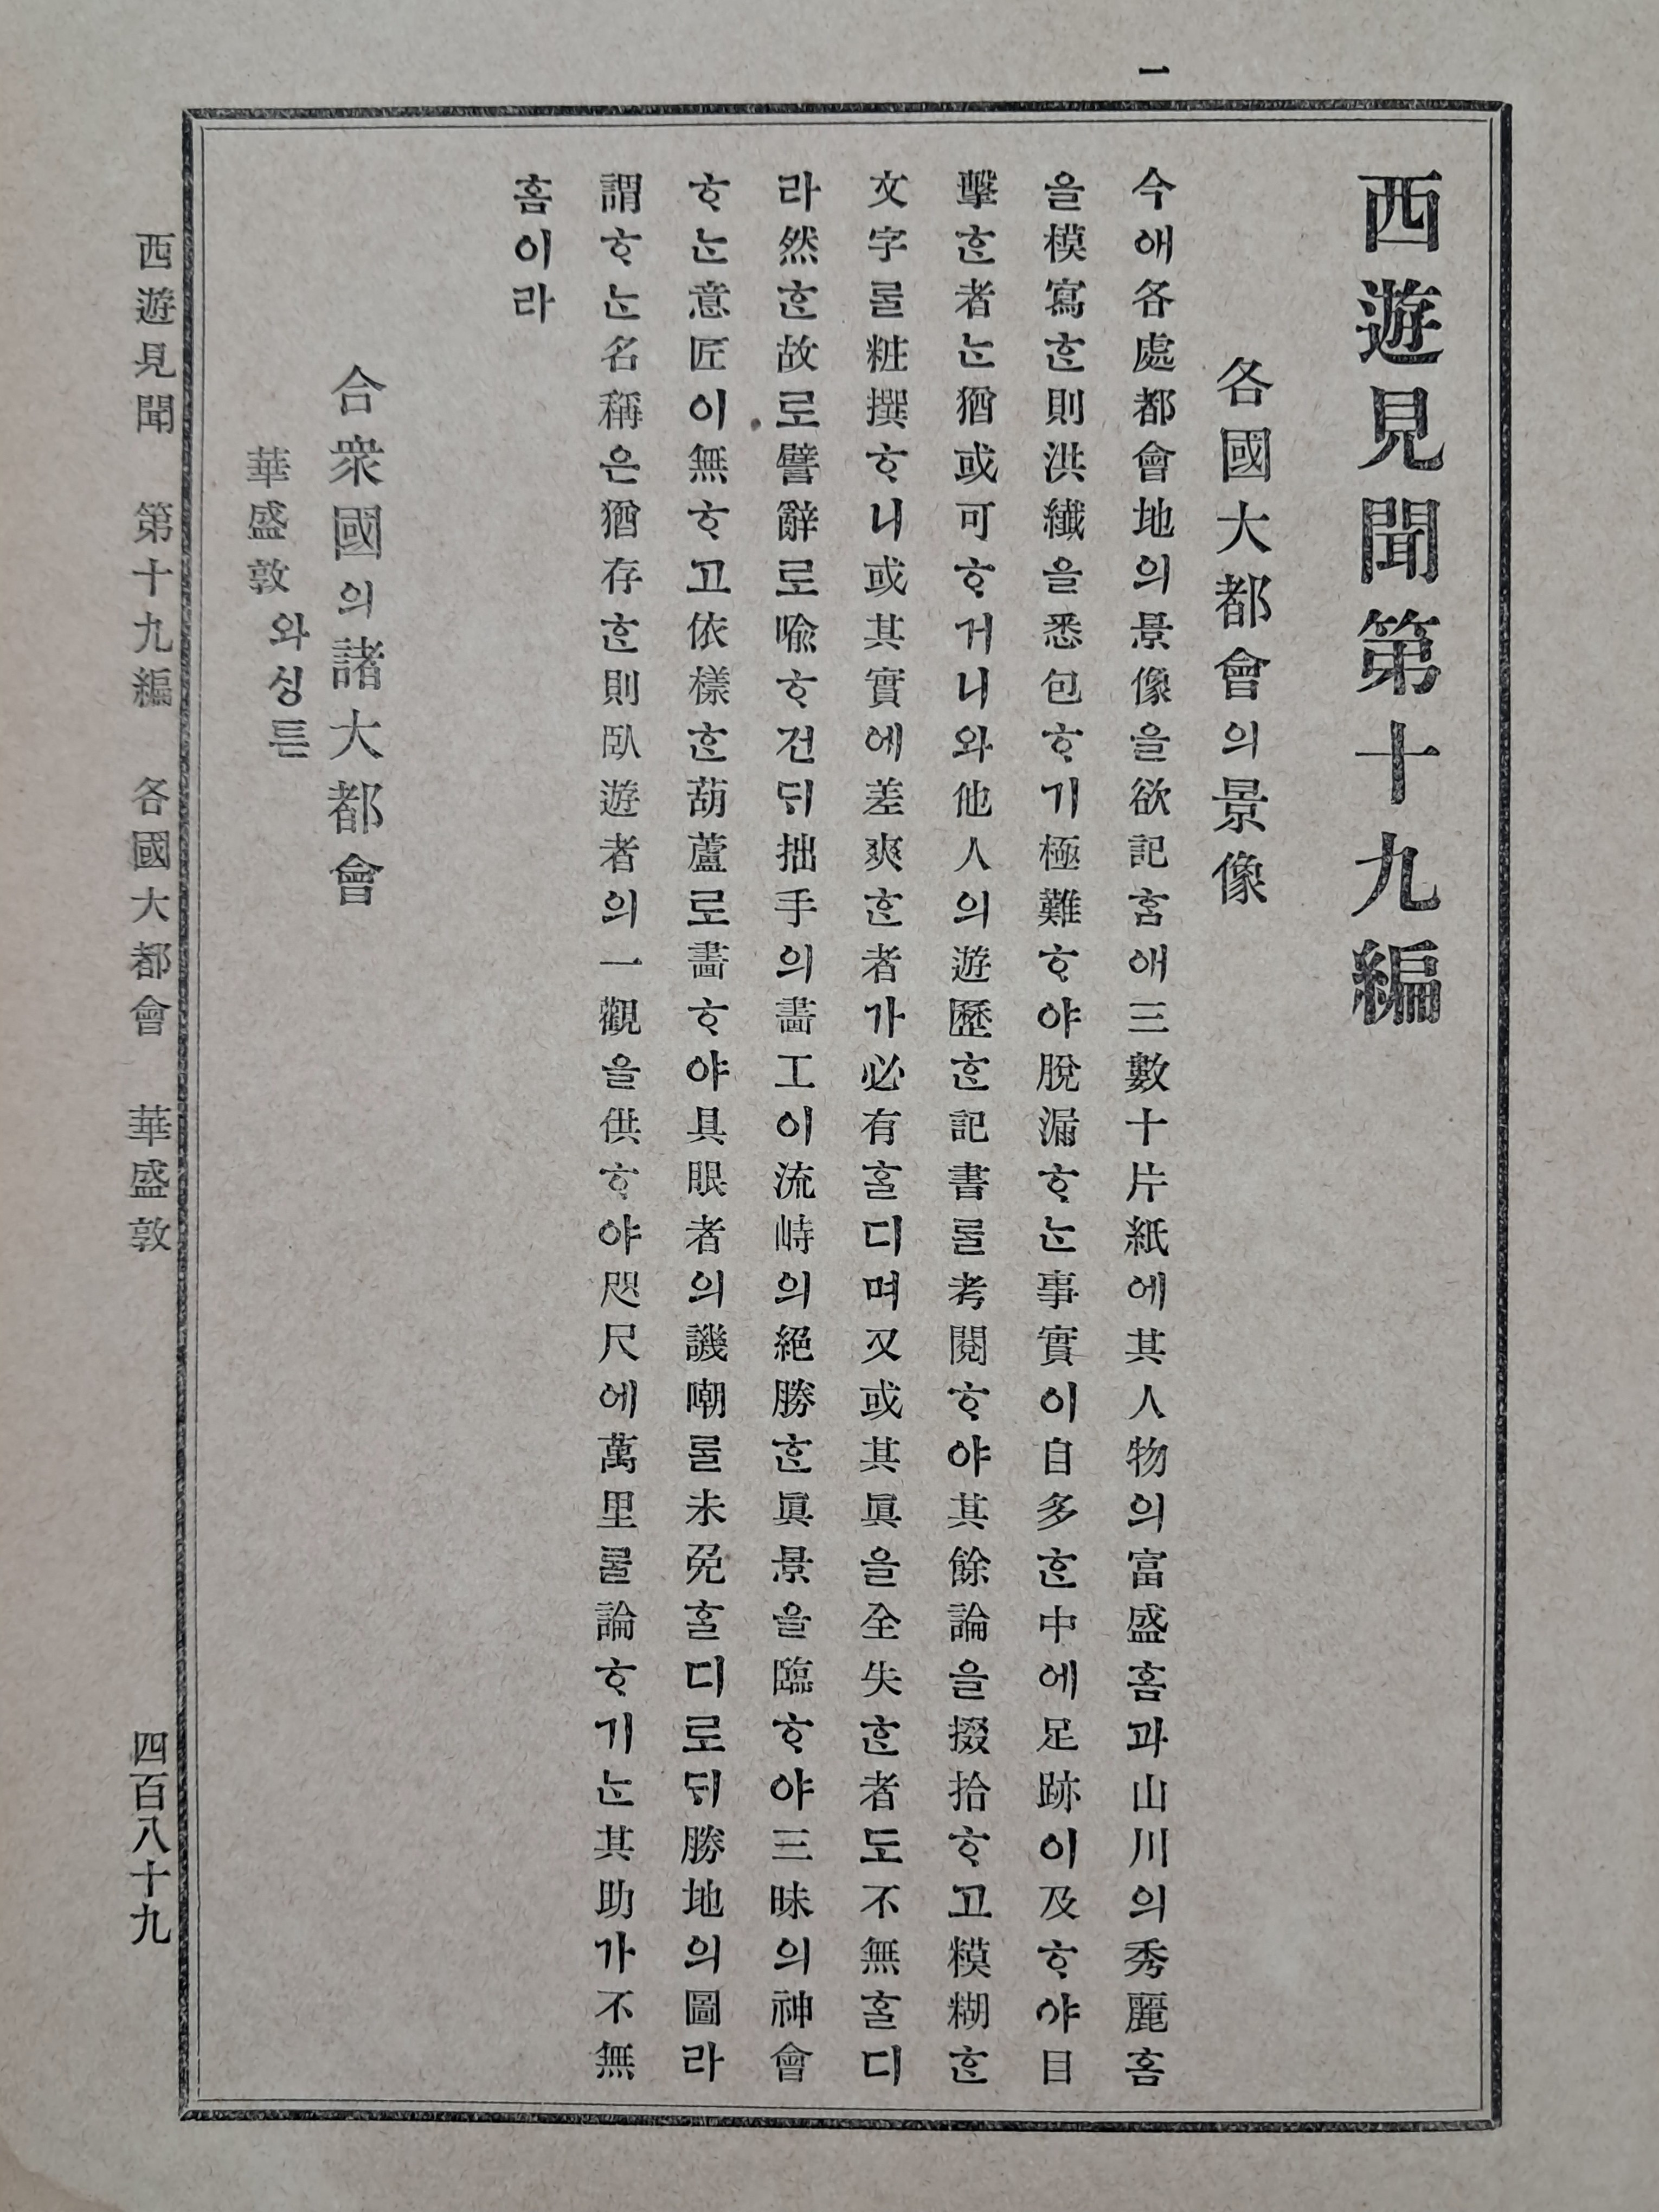 一
西遊見聞第十九編
各國大都會의景像
今애各處都會地의景像을欲記홈애三數十片紙에其人物의富盛홈과山川의秀麗홈
을模寫ᄒᆞᆫ則洪纖을悉包ᄒᆞ기極難ᄒᆞ야脫漏ᄒᆞᄂᆞᆫ事實이自多ᄒᆞᆫ中에足跡이及ᄒᆞ야目
擊ᄒᆞᆫ者ᄂᆞᆫ猶或可ᄒᆞ거니와他人의遊歷ᄒᆞᆫ記書ᄅᆞᆯ考閱ᄒᆞ야其餘論을掇拾ᄒᆞ고糢糊ᄒᆞᆫ
文字ᄅᆞᆯ粧撰ᄒᆞ니或其實에差爽ᄒᆞᆫ者가必有ᄒᆞᆯ디며又或其眞을全失ᄒᆞᆫ者도不無ᄒᆞᆯ디
라然ᄒᆞᆫ故로譬辭로喩ᄒᆞ건ᄃᆡ拙手의畵工이流峙의絕勝ᄒᆞᆫ眞景을臨ᄒᆞ야三昧의神會
ᄒᆞᄂᆞᆫ意匠이無ᄒᆞ고依樣ᄒᆞᆫ葫蘆로畵ᄒᆞ야具眼者의譏嘲ᄅᆞᆯ未免ᄒᆞᆯ디로ᄃᆡ勝地의圖라
謂ᄒᆞᄂᆞᆫ名稱은猶存ᄒᆞᆫ則臥遊者의一觀을供ᄒᆞ야咫尺에萬里ᄅᆞᆯ論ᄒᆞ기ᄂᆞᆫ其助가不無
홈이라
合衆國의諸大都會
華盛敦 와싱튼
西遊見聞 第十九編 各國大都會 華盛敦 四百八十九